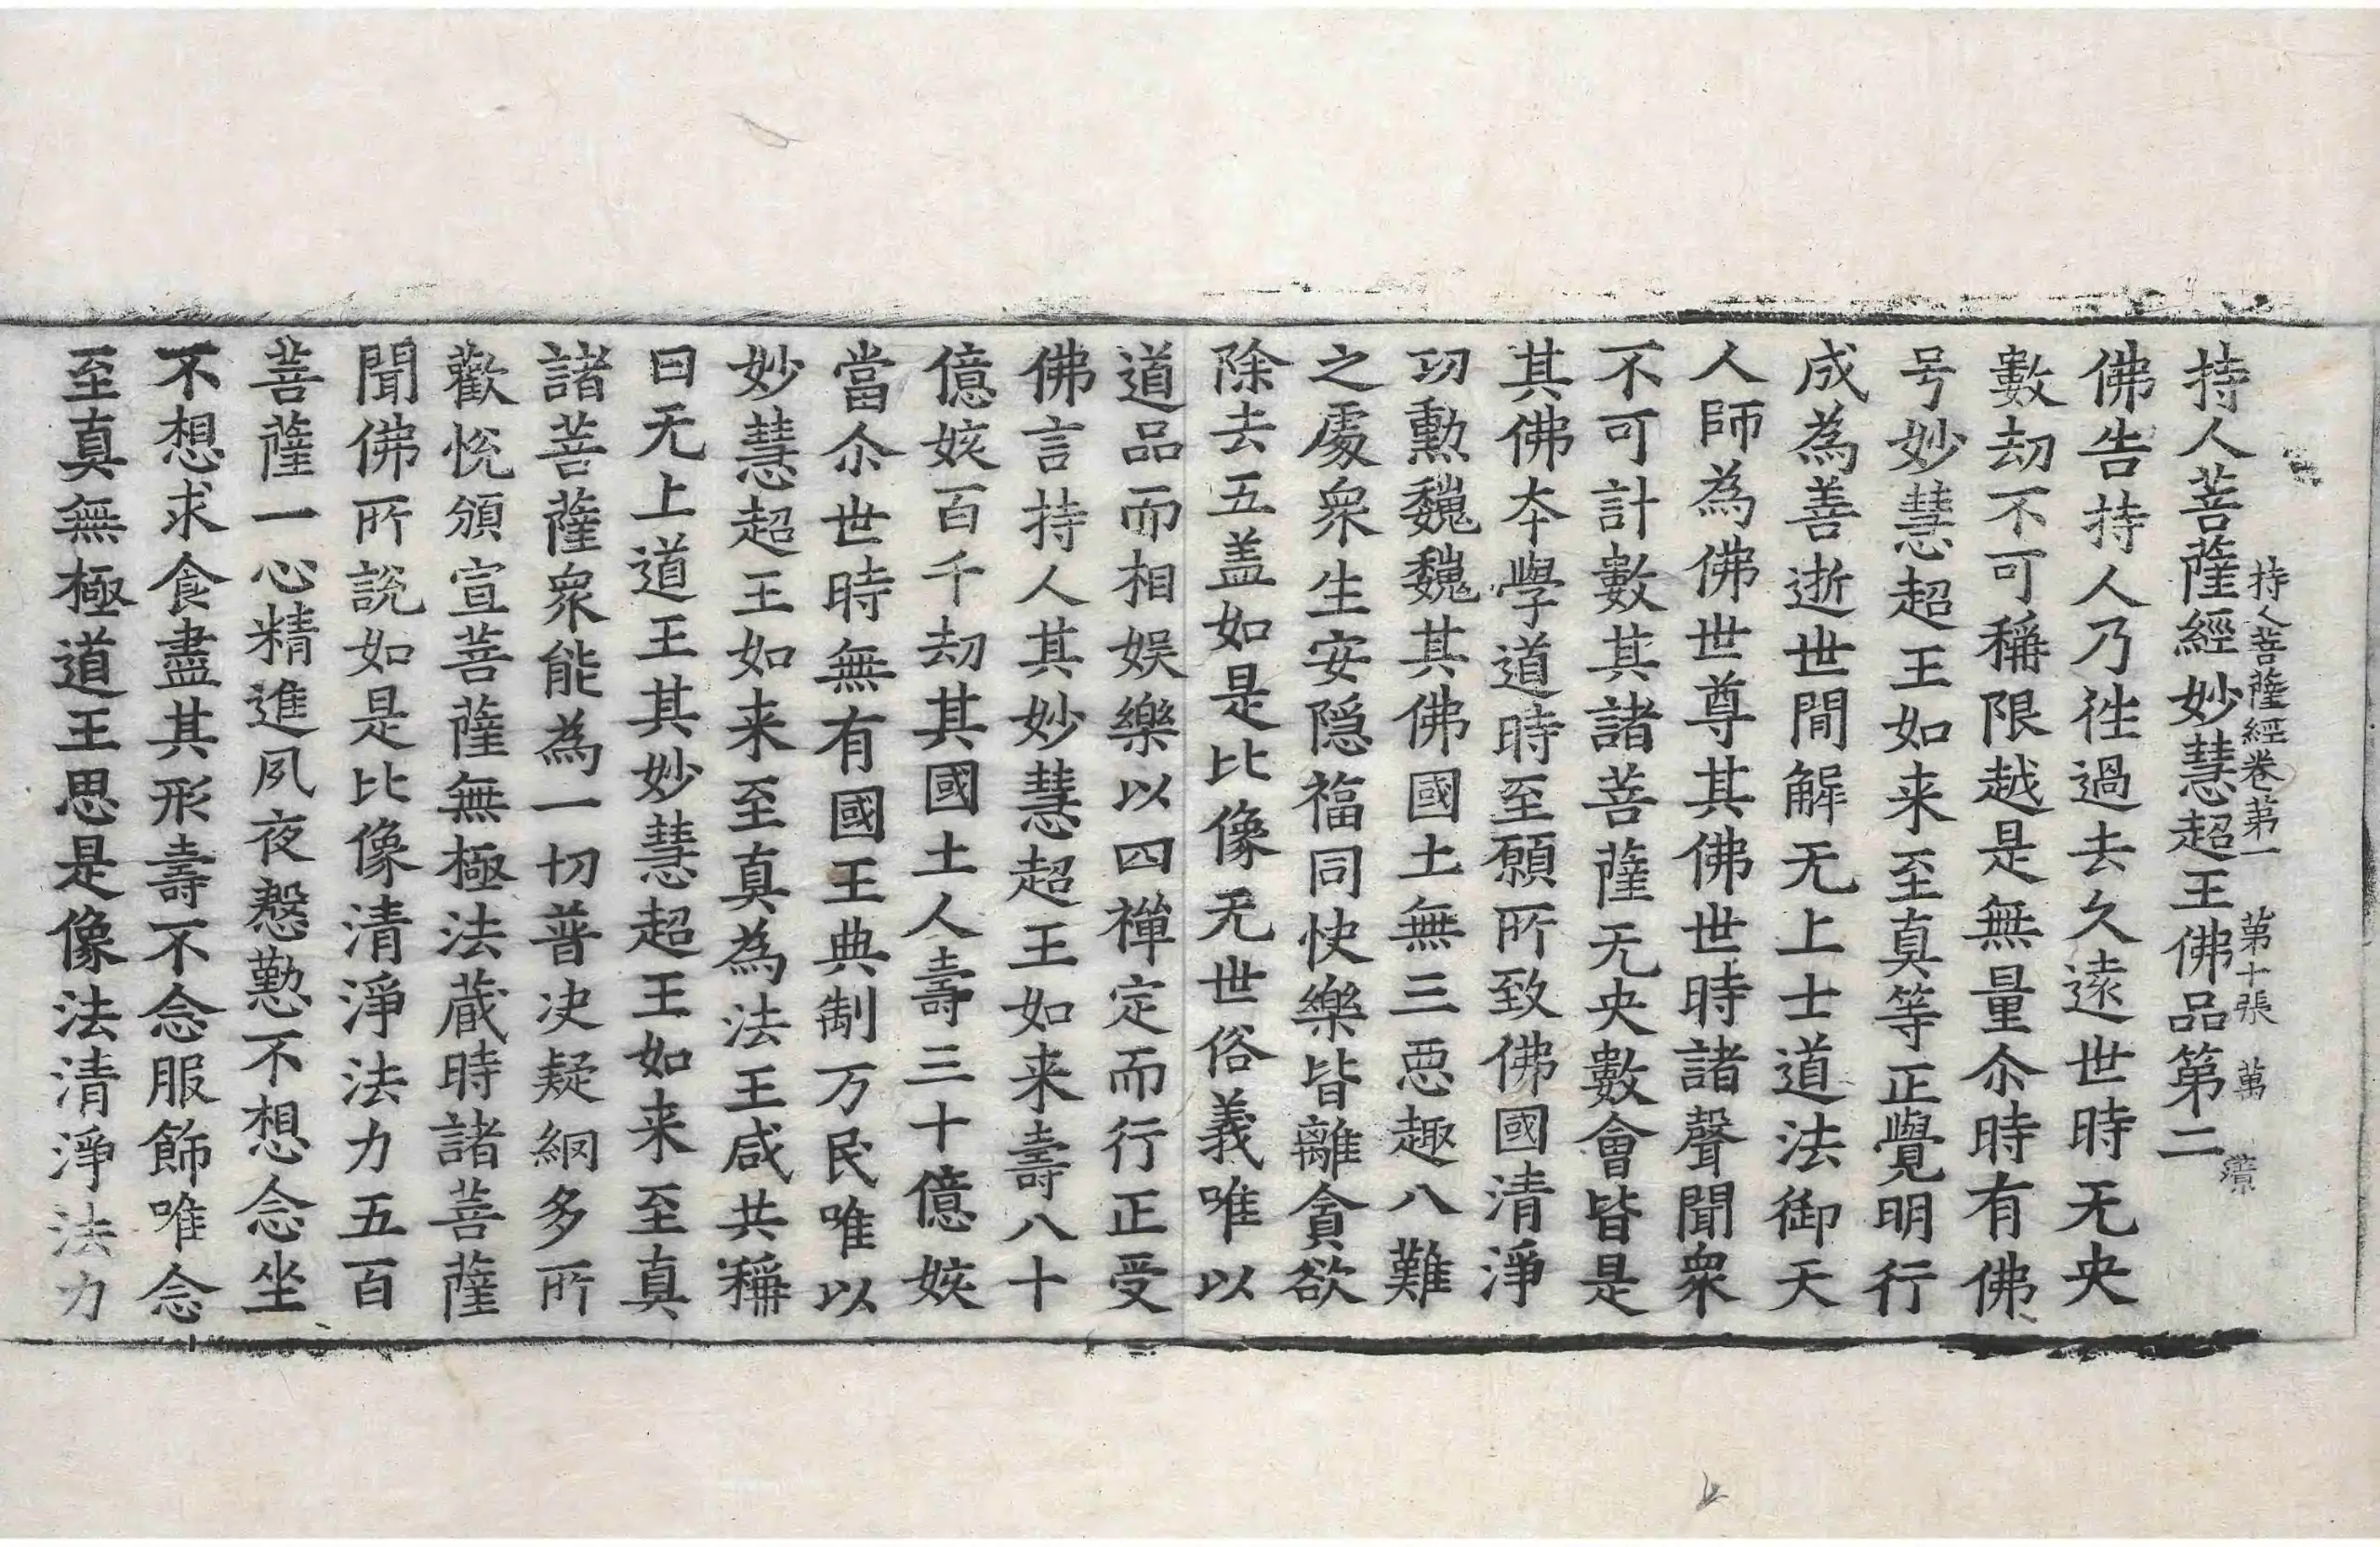 持人菩薩經卷第一 第十張 萬
持人菩薩經妙慧超王佛品第二
佛告持人乃徃過去久遠世時无央
數劫不可稱限越是無量尒時有佛
号妙慧超王如来至真等正覺明行
成為善逝世間解无上士道法御天
人師為佛世尊其佛世時諸聲聞衆
不可計數其諸菩薩无央數會皆是
其佛夲學道時至願所致佛國清淨
功勲巍巍其佛國土無三惡趣八難
之處衆生安隠福同快樂皆離貪欲
除去五盖如是比像无世俗義唯以
道品而相娱樂以四禪定而行正受
佛言持人其妙慧超王如来壽八十
億姟百千劫其國土人壽三十億姟
當尒世時無有國王典制万民唯以
妙慧超王如来至真為法王咸共稱
曰无上道王其妙慧超王如来至真
諸菩薩衆能為一切普决疑網多所
歡悅頒宣菩薩無極法蔵時諸菩薩
聞佛所說如是比像清淨法力五百
菩薩一心精進夙夜慇懃不想念坐
不想求食盡其形壽不念服飾唯念
至真無極道王思是像法清淨法力